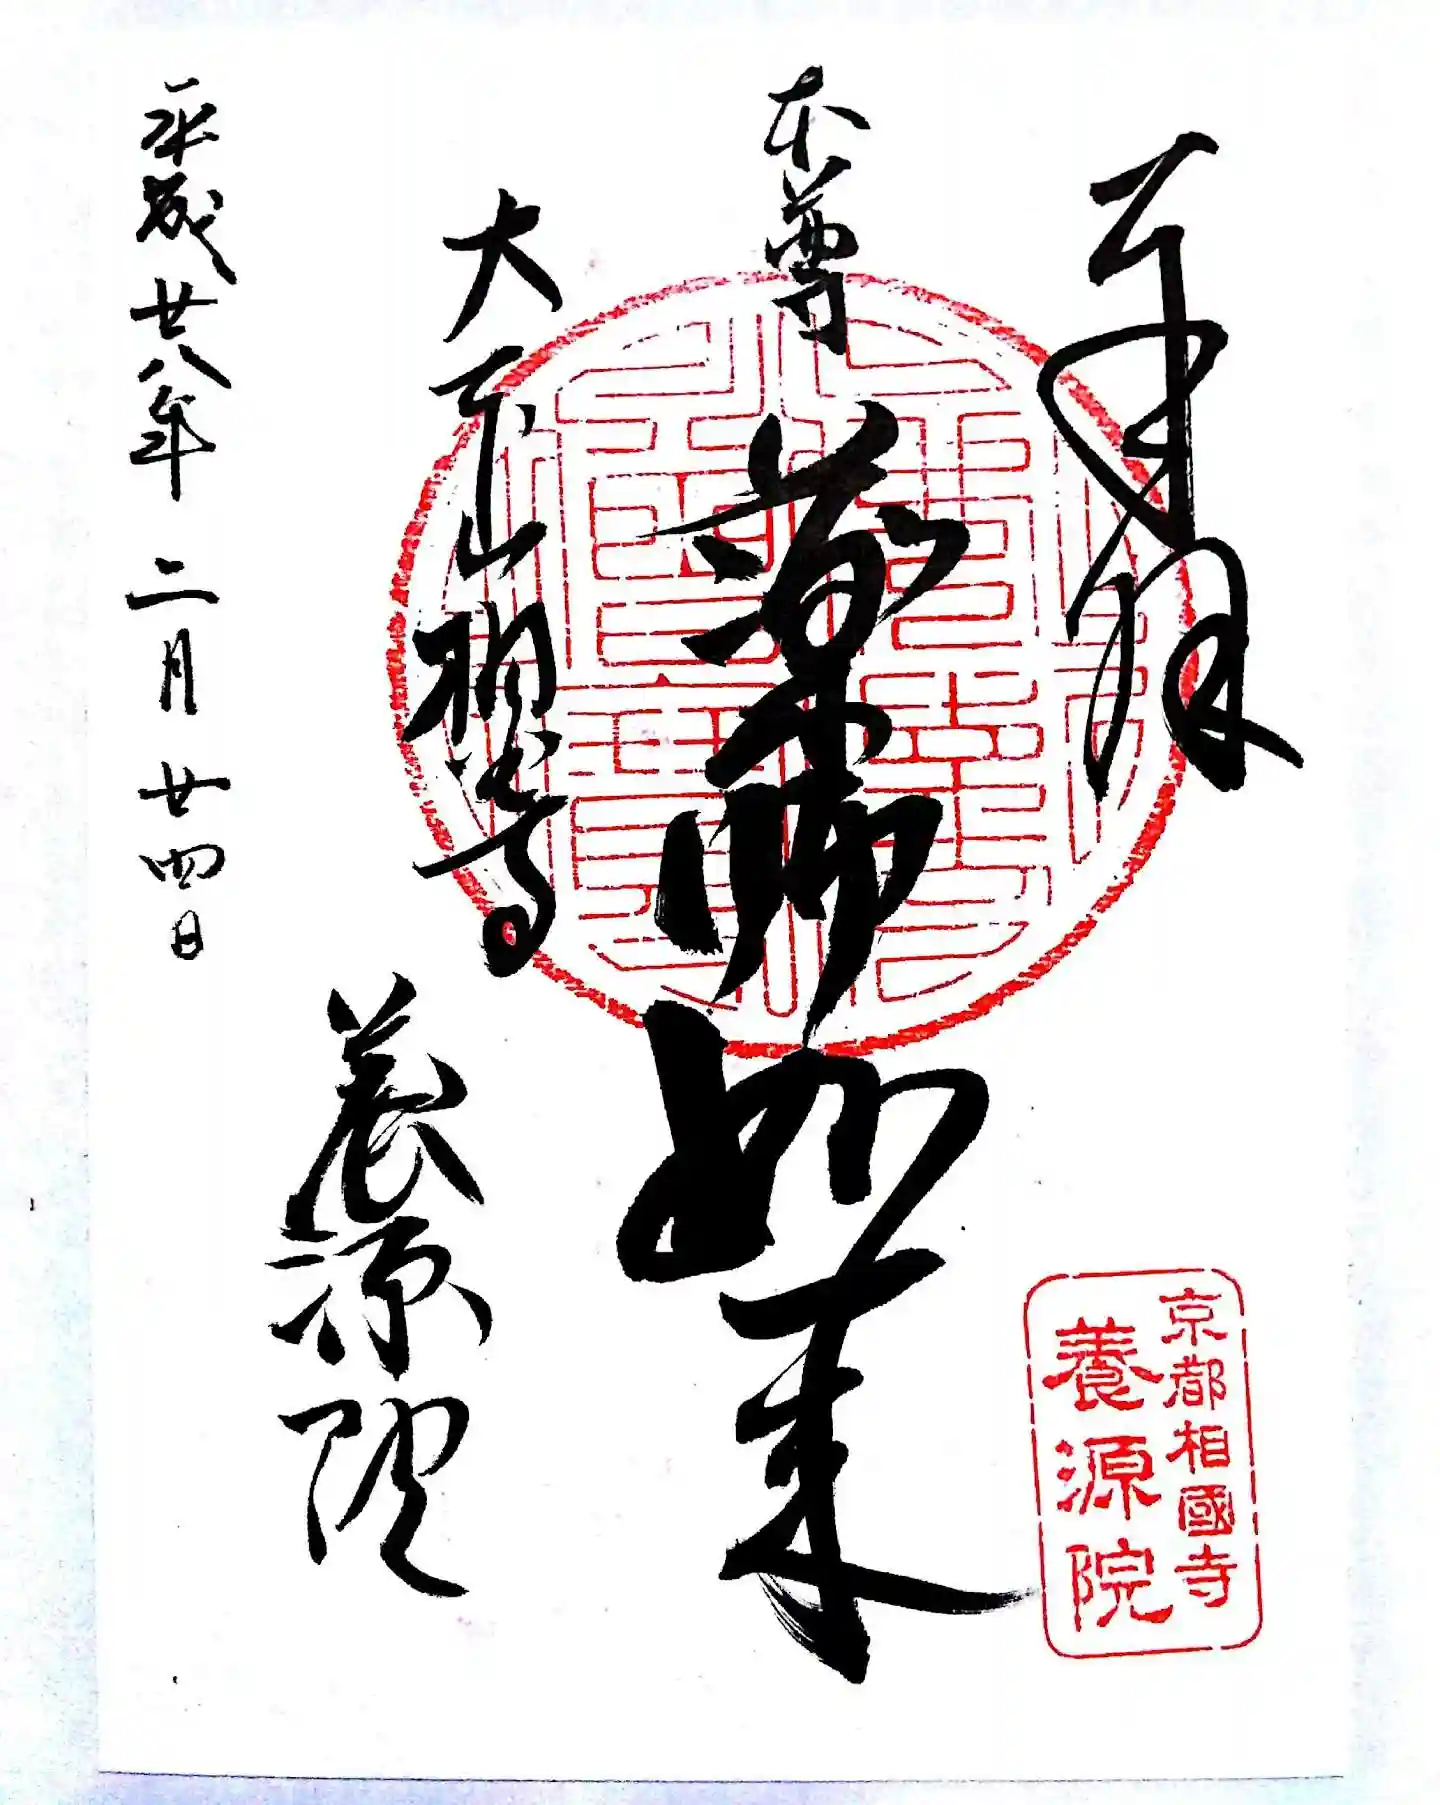 奉拝
本尊
薬師如来
大本山相國寺
養源院
平成廿八年二月廿四日
京都相國寺
養源院